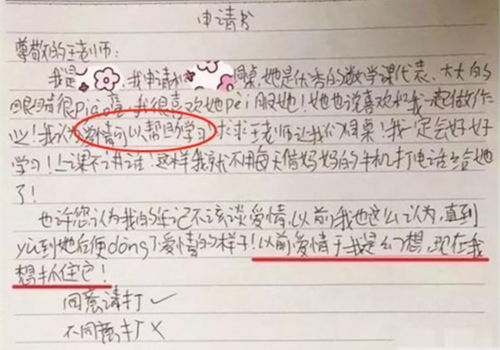 申请书
尊敬的王老师:
我是 ,我申请和 同桌,她是优秀的数学课代表、大大的
眼睛很piao亮,我很喜欢她pei服她!她也说喜欢和我一起做作
业!我认为爱情可以帮助学习求求王老师让我们同桌!我一定会好好
学习!上课不讲话!这样我就不用每天借妈妈的手机打电话给她
了!
也许您认为我的年记不该谈爱情,以前我也这么认为,直到
yu到她后便dong了爱情的样子!以前爱情于我是幻想,现在我
想抓住它!
同意请打✓
不同意打✗